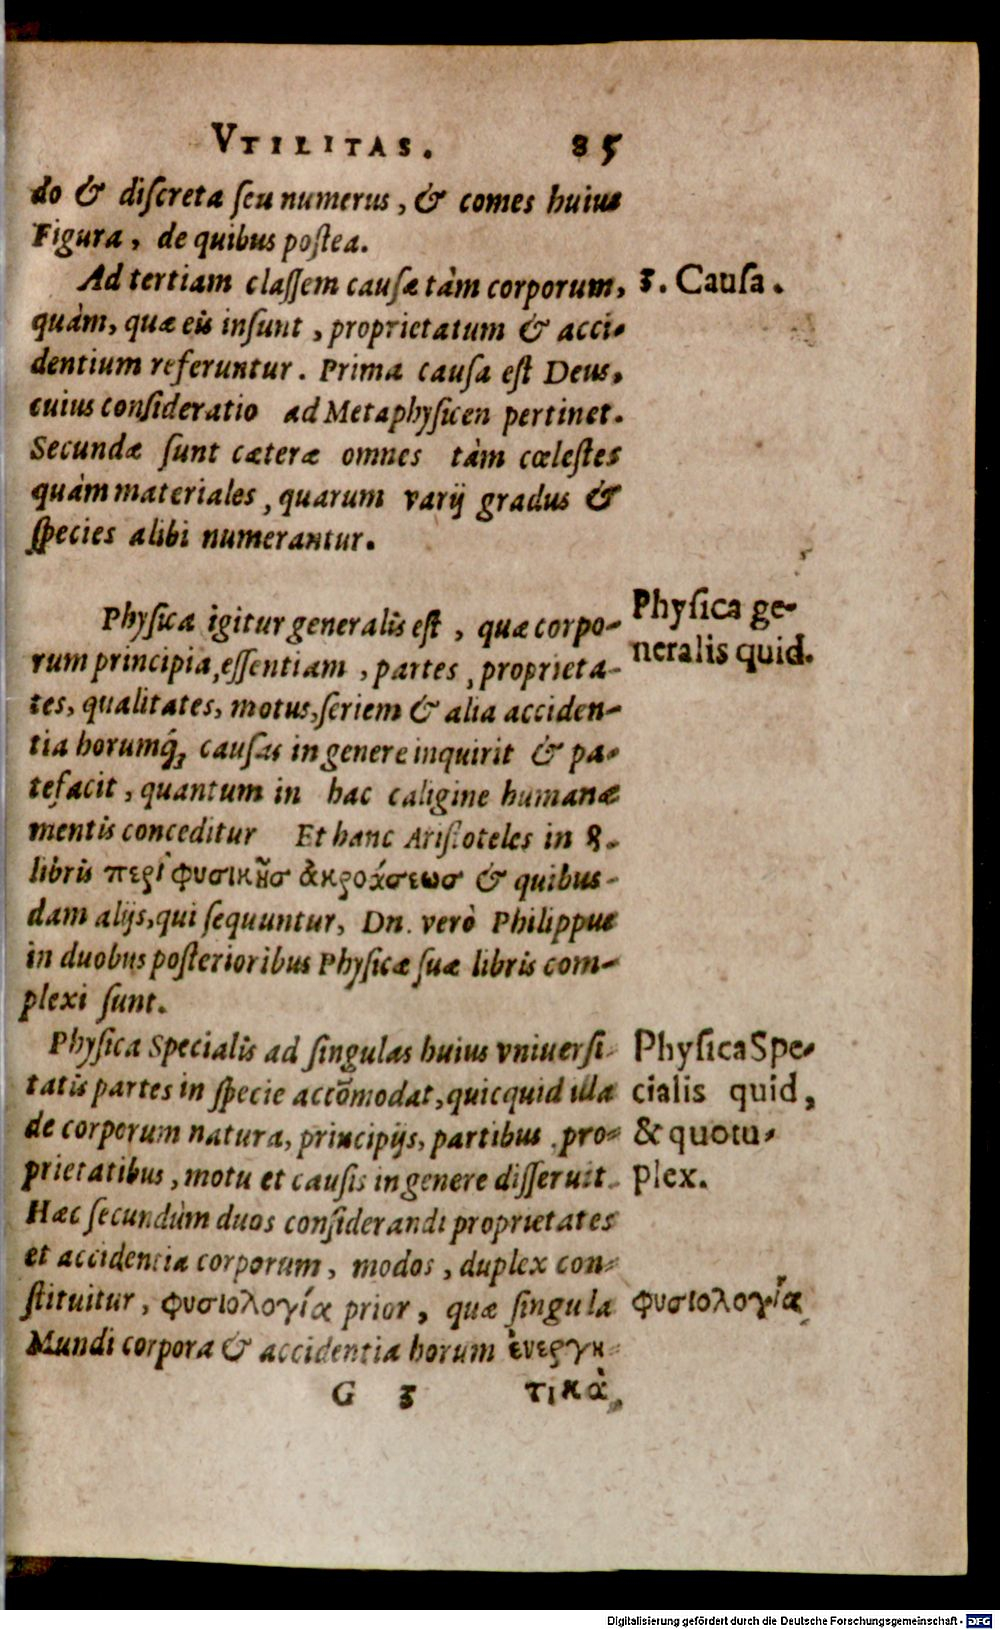 VTILITAS. 85
do & diſcreta ſeu numerus, & comes huius
Figura, de quibus poſtea.
Ad tertiam claſſem cauſæ tàm corporum,
3. Cauſa.
quàm, quæ eis inſunt, proprietatum & acci-
dentium referuntur. Prima cauſa eſt Deus,
cuius conſideratio ad Metaphyſicen pertinet.
Secundæ ſunt cæteræ omnes tàm cœleſtes
quàm materiales, quarum varij gradus &
ſpecies alibi numerantur.
Phyſica igitur generalis eſt, quæ corpo-
rum principia, eſſentiam, partes, proprieta-
tes, qualitates, motus, ſeriem & alia acciden-
tia horumq́ꝫ cauſas in genere inquirit & pa-
tefacit, quantum in hac caligine humanæ
mentis conceditur Et hanc Ariſtoteles in 8.
libris περὶ φυσικῆσ ἀκροάσεωσ & quibus-
dam alijs, qui ſequuntur, Dn. verò Philippus
in duobus poſterioribus Phyſicæ ſuæ libris com-
plexi ſunt.
Phyſica ge-
neralis quid.
Phyſica Specialis ad ſingulas huius vniuerſi-
tatis partes in ſpecie accōmodat, quicquid illa
de corporum natura, principijs, partibus, pro-
prietatibus, motu et cauſis in genere diſſeruit.
Hæc ſecundùm duos conſiderandi proprietates
et accidentia corporum, modos, duplex con-
ſtituitur, φυσιολογία prior, quæ ſingula
Mundi corpora & accidentia horum ἐνεργη-
Phyſica Spe-
cialis quid,
& quotu-
plex.
φυσιολογία
G 3 τικὰ,
Digitalisierung gefördert durch die Deutsche Forschungsgemeinschaft - DFG